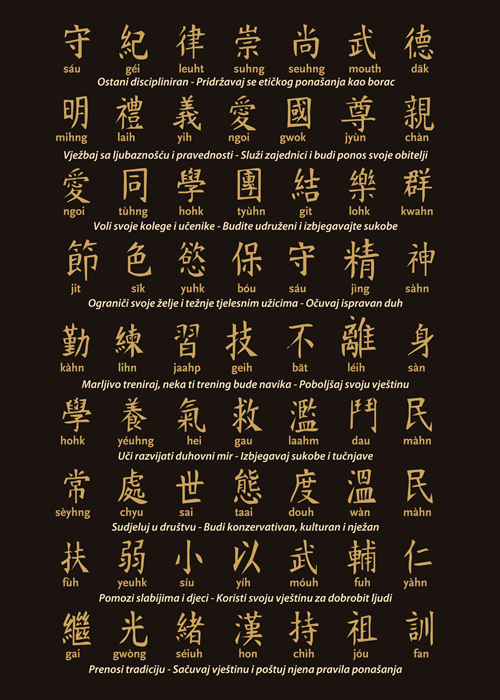 守 紀 律 崇 尚 武 德
sáu géi leuht suhng seuhng mouth dāk
Ostani discipliniran - Pridržavaj se etičkog ponašanja kao borac
明 禮 義 愛 國 尊 親
mihng laih yih ngoi gwok jyùn chàn
Vježbaj sa ljubaznošću i pravednosti - Služi zajednici i budi ponos svoje obitelji
愛 同 學 團 結 樂 群
ngoi tùhng hohk tyùhn git lohk kwahn
Voli svoje kolege i učenike - Budite udruženi i izbjegavajte sukobe
節 色 慾 保 守 精 神
jit sīk yuhk bóu sáu jìng sàhn
Ograniči svoje želje i težnje tjelesnim užicima - Očuvaj ispravan duh
勤 練 習 技 不 離 身
kàhn lihn jaahp geih bāt léih sàn
Marljivo treniraj, neka ti trening bude navika - Poboljšaj svoju vještinu
學 養 氣 救 濫 鬥 民
hohk yéuhng hei gau laahm dau màhn
Uči razvijati duhovni mir - Izbjegavaj sukobe i tučnjave
常 處 世 態 度 溫 民
sèyhng chyu sai taai douh wàn màhn
Sudjeluj u društvu - Budi konzervativan, kulturan i nježan
扶 弱 小 以 武 輔 仁
fùh yeuhk síu yíh móuh fuh yàhn
Pomozi slabijima i djeci - Koristi svoju vještinu za dobrobit ljudi
繼 光 緒 漢 持 祖 訓
gai gwòng séiuh hon chìh jóu fan
Prenosi tradiciju - Sačuvaj vještinu i poštuj njena pravila ponašanja